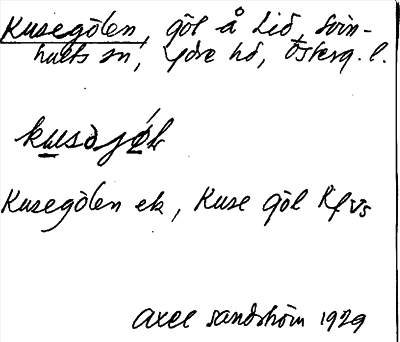 Kusegölen, göl å Lid, Svin-
hults sn, Ydre hd, Österg. l.
Kusegölen ek, Kuse göl Rfvs
Axel Sandström 1929